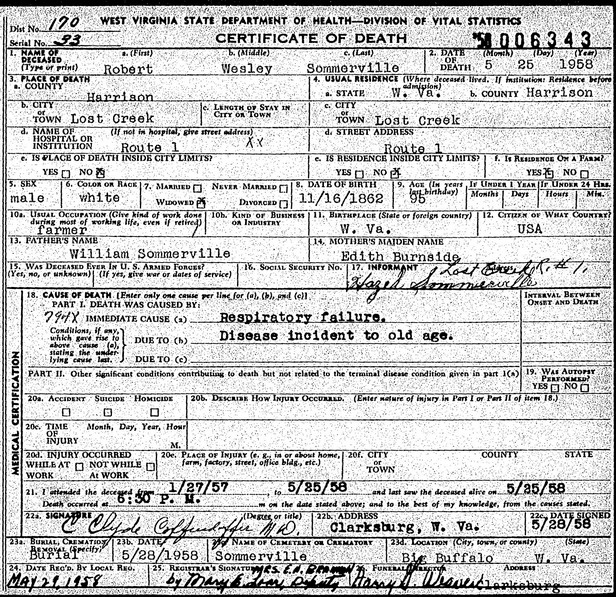 WEST VIRGINIA STATE DEPARTMENT OF HEALTH—DIVISION OF VITAL STATISTICS
Dist No. 170
Serial No. 33
CERTIFICATE OF DEATH
58 006343
1. NAME OF DECEASED (Type or print) a. (First) b. (Middle) c. (Last) 2. DATE OF DEATH (Month) (Day) (Year)
Robert Wesley Sommerville 5 25 1958
3. PLACE OF DEATH 4. USUAL RESIDENCE (Where deceased lived. If institution: Residence before admission)
a. COUNTY Harrison a. STATE W. Va. b. COUNTY Harrison
b. CITY OR TOWN Lost Creek c. LENGTH OF STAY IN CITY OR TOWN c. CITY OR TOWN Lost Creek
d. NAME OF HOSPITAL OR INSTITUTION (If not in hospital, give street address) Route 1 XX d. STREET ADDRESS Route 1
e. IS PLACE OF DEATH INSIDE CITY LIMITS? e. IS RESIDENCE INSIDE CITY LIMITS? f. IS RESIDENCE ON A FARM?
YES NO X YES NO X YES X NO
5. SEX 6. COLOR OR RACE 7. MARRIED NEVER MARRIED 8. DATE OF BIRTH 9. AGE (In years last birthday) IF UNDER 1 YEAR IF UNDER 24 HRS.
male white WIDOWED X DIVORCED 11/16/1862 95 Months Days Hours Min.
10a. USUAL OCCUPATION (Give kind of work done during most of working life, even if retired) 10b. KIND OF BUSINESS OR INDUSTRY 11. BIRTHPLACE (State or foreign country) 12. CITIZEN OF WHAT COUNTRY
farmer W. Va. USA
13. FATHER'S NAME 14. MOTHER'S MAIDEN NAME
William Sommerville Edith Burnside
15. WAS DECEASED EVER IN U. S. ARMED FORCES? 16. SOCIAL SECURITY NO. 17. INFORMANT Lost Creek R. #1.
(Yes, no, or unknown) (If yes, give war or dates of service) Hazel Sommerville
MEDICAL CERTIFICATION
18. CAUSE OF DEATH [Enter only one cause per line for (a), (b), and (c)] INTERVAL BETWEEN ONSET AND DEATH
PART I. DEATH WAS CAUSED BY:
794X IMMEDIATE CAUSE (a) Respiratory failure.
Conditions, if any, which gave rise to above cause (a), stating the underlying cause last. DUE TO (b) Disease incident to old age.
DUE TO (c)
PART II. Other significant conditions contributing to death but not related to the terminal disease condition given in part 1(a) 19. WAS AUTOPSY PERFORMED? YES NO
20a. ACCIDENT SUICIDE HOMICIDE 20b. DESCRIBE HOW INJURY OCCURRED. (Enter nature of injury in Part I or Part II of item 18.)
20c. TIME OF INJURY Month, Day, Year, Hour
M.
20d. INJURY OCCURRED 20e. PLACE OF INJURY (e. g., in or about home, farm, factory, street, office bldg., etc.) 20f. CITY OR TOWN COUNTY STATE
WHILE AT WORK NOT WHILE AT WORK
21. I attended the deceased from 1/27/57 to 5/25/58 and last saw the deceased alive on 5/25/58
Death occurred at 6:30 P. M. m on the date stated above; and to the best of my knowledge, from the causes stated.
22a. SIGNATURE (Degree or title) 22b. ADDRESS 22c. DATE SIGNED
C Clyde M D Clarksburg, W. Va. 5/28/58
23a. BURIAL, CREMATION, REMOVAL (Specify) 23b. DATE 23c. NAME OF CEMETERY OR CREMATORY 23d. LOCATION (City, town, or county) (State)
Burial 5/28/1958 Sommerville Big Buffalo W. Va.
24. DATE REC'D. BY LOCAL REG. 25. REGISTRAR'S SIGNATURE MRS. E.A. 26. FUNERAL DIRECTOR ADDRESS
MAY 29 1958 by Mary E. Harry Clarksburg